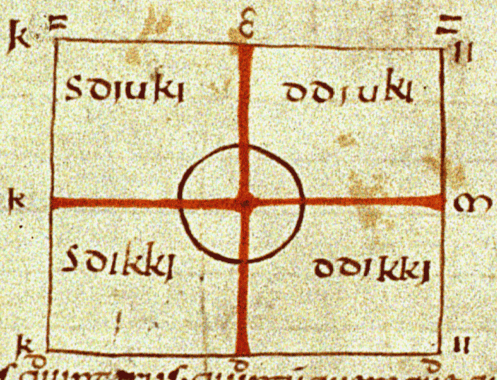 k = ε =
II
Sdiuki ddiuki
k m
Sdikki ddikki
k II